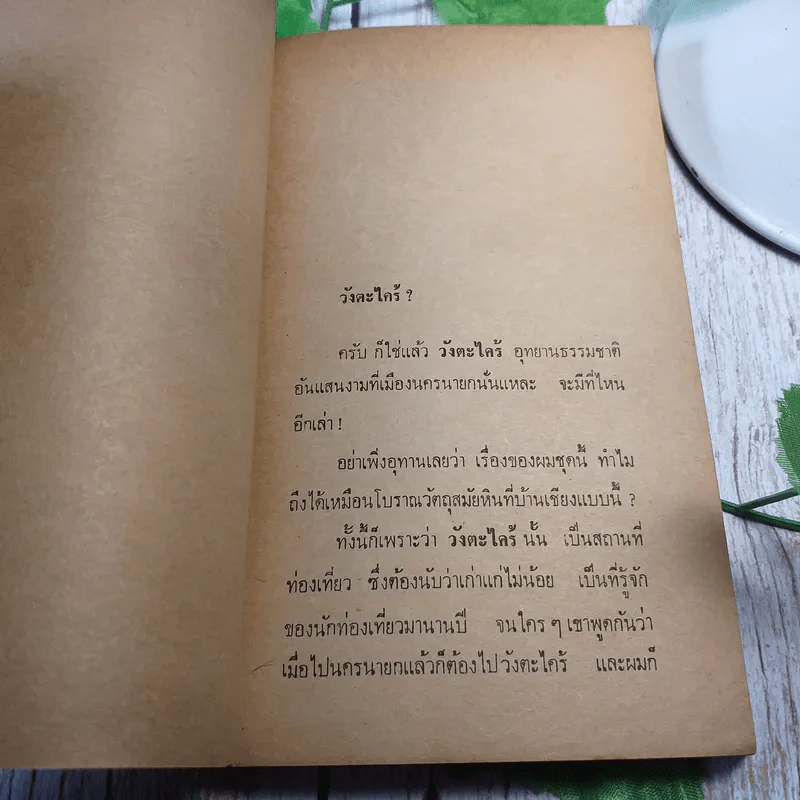 วังตะไคร้ ?
ครับ ก็ใช่แล้ว วังตะไคร้ อุทยานธรรมชาติ
อันแสนงามที่เมืองนครนายกนั่นแหละ จะมีที่ไหน
อีกเล่า !
อย่าเพิ่งอุทานเลยว่า เรื่องของผมชุดนี้ ทำไม
ถึงได้เหมือนโบราณวัตถุสมัยหินที่บ้านเชียงแบบนี้ ?
ทั้งนี้ก็เพราะว่า วังตะไคร้ นั้น เป็นสถานที่
ท่องเที่ยว ซึ่งต้องนับว่าเก่าแก่ไม่น้อย เป็นที่รู้จัก
ของนักท่องเที่ยวมานานปี จนใคร ๆ เขาพูดกันว่า
เมื่อไปนครนายกแล้วก็ต้องไปวังตะไคร้ และผมก็